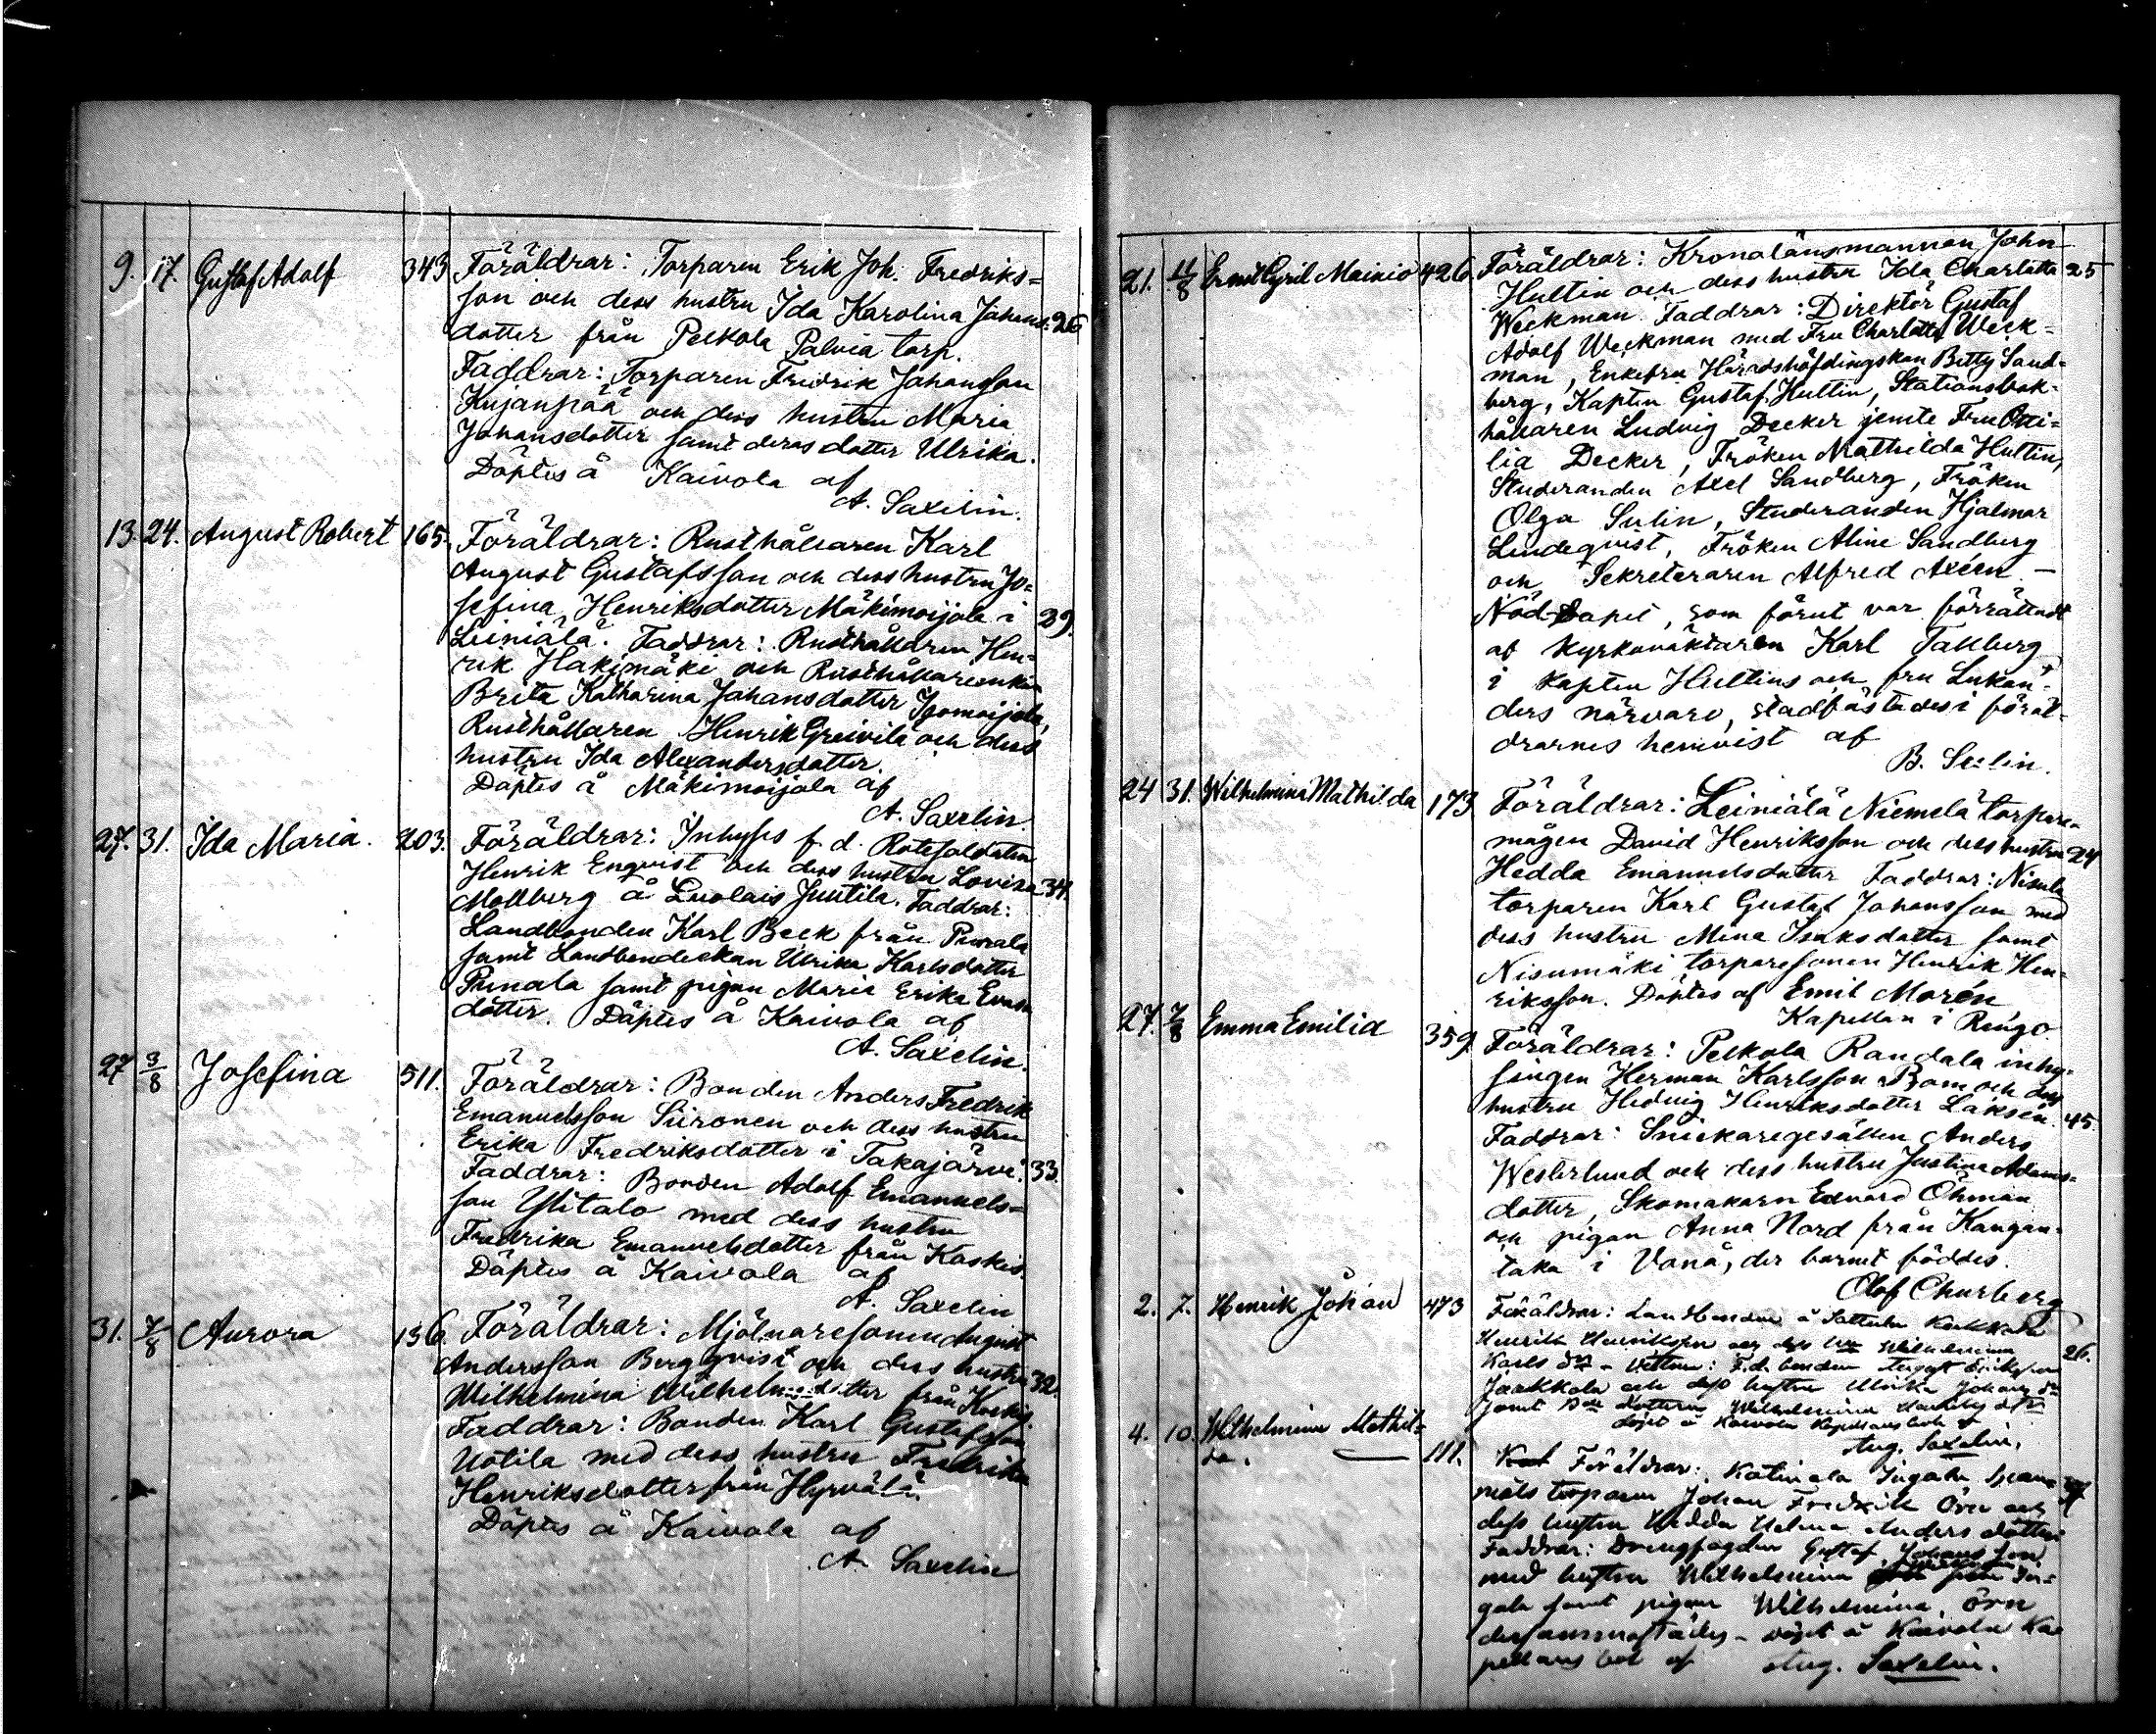 9. 17. Gustaf Adolf 343 Föräldrar: Torparen Erik Joh. Fredriks=
son och dess hustru Ida Karolina Johans= 26
dotter från Pelkola Palvia torp.
Faddrar: Torparen Fredrik Johansson
Kujanpää och dess hustru Maria
Johansdotter samt deras dotter Ulrika.
Döptes å Kaivola af
A. Saxelin.
13. 24. August Robert 165. Föräldrar: Rusthållaren Karl
August Gustafsson och dess hustru Jo=
sefina Henriksdotter Mäkimoijola i 39.
Leiniälä. Faddrar: Rusthållaren Hen=
rik Hakimäki och Rusthållareenkan
Brita Katharina Johansdotter Isomoijola,
Rusthållaren Henrik Greivilä och dess
hustru Ida Alexandersdotter.
Döptes å Mäkimoijola af
A. Saxelin
27. 31. Ida Maria. 203. Föräldrar: Inhyses f. d. Rotesoldaten
Henrik Enqvist och dess hustru Lovisa 34.
Mollberg å Luolais Junttila. Faddrar:
Landbonden Karl Beck från Punala
samt Landbondeskan Ulrika Karlsdotter
Punala samt pigan Maria Erika Evas
dotter. Döptes å Kaivola af
A. Saxelin.
27 3/8 Josefina 511. Föräldrar: Bonden Anders Fredrik
Emanuelsson Siironen och dess hustru
Erika Fredriksdotter i Takajärvi. 33.
Faddrar: Bonden Adolf Emanuels=
son Ylitalo med dess hustru
Fredrika Emanuelsdotter från Kaskis.
Döptes å Kaivola af
A. Saxelin
31. 7/8 Aurora 136. Föräldrar: Mjölnaresonen August
Andersson Bergqvist och dess hustru 32.
Wilhelmina Wilhelmsdotter från
Faddrar: Bonden Karl Gustafsson
Uotila med dess hustru Fredrika
Henriksdotter från Hyrvälä.
Döptes å Kaivola af
A. Saxelin
21. 11/8 Ernst Cyril Mainio 426. Föräldrar: Kronolänsmannen John 25
Hultin och dess hustru Ida Charlotta
Weckman. Faddrar: Direktör Gustaf
Adolf Weckman med Fru Charlotta Weck=
man, Enkefru Häradshöfdingskan Betty Sand=
berg, Kapten Gustaf Hultin, Stationsbok=
hållaren Ludvig Decker jemte Fru Otti=
lia Decker, Fröken Mathilda Hultin,
Studeranden Axel Sandberg, Fröken
Olga Sulin, Studeranden Hjalmar
Lindeqvist, Fröken Aline Sandberg
och Sekreteraren Alfred Axéen –
Nöd-dopet, som förut var förrättadt
af kyrkovaktaren Karl Tallberg
i Kapten Hultins och fru Lukan=
ders närvaro, stadfästades i föräl=
drarnes hemvist af
B. Serlin.
24 31. Wilhelmina Mathilda 173 Föräldrar: Leiniälä Niemelä torpare=
mågen David Henriksson och dess hustru 24
Hedda Emanuelsdotter Faddrar: Nisula
torparen Karl Gustaf Johansson med
dess hustru Mina Isaksdotter samt
Nisumäki torparesonen Henrik Hen=
riksson. Döptes af Emil Morén
Kapellan i Rengo
27. 7/8 Emma Emilia 359. Föräldrar: Pelkola Randala inhy=
singen Herman Karlsson Bom och dess
hustru Hedvig Henriksdotter Laksén. 45.
Faddrar: Snickaregesällen Anders
Westerlund och dess hustru Justina Adams=
dotter, Skomakaren Edvard Öhman
och pigan Anna Nord från Kangan=
taka i Vanå, der barnet föddes.
Olof Churberg
2. 7. Henrik Johan 473 Föräldrar: Landbonden å Sattula
Henrik Henriksson och dess Wilhelmina 26.
Karls August Eriksson
Jaakkola och dess hustru Ulrika Johans
samt Dottren Wilhelmina
döpt å Kaivola Kapellans bol af
Aug. Saxelin.
4. 10. Wilhelmina Mathil=
da. 111. Föräldrar: Katinala Ingala
torparen Johan Fredrik Örn och
dess hustru Hedda Helena Anders dotter
Faddrar: Drengfogden Gustaf Johansson
med hustru Wilhelmina från In=
gala samt pigan Wilhelmina Örn
dersammastädes – döpt å Kaivola Ka
pellans bol af Aug. Saxelin.